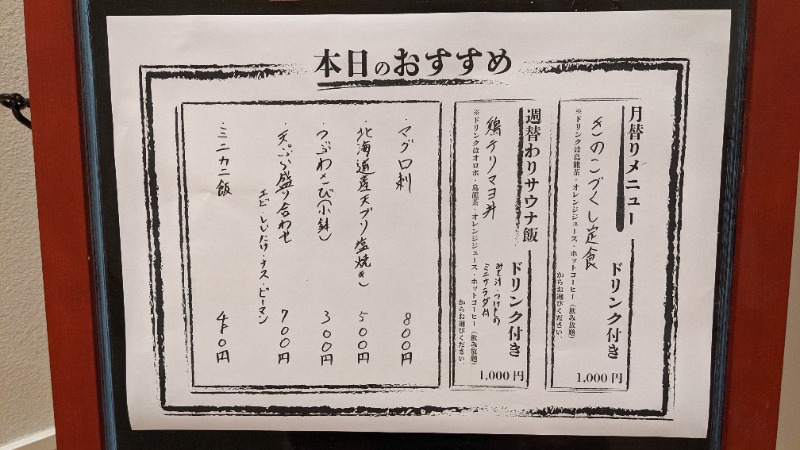 本日のおすすめ
月替りメニュー
きのこづくし定食
ドリンク付き
※ドリンクは烏龍茶・オレンジジュース・ホットコーヒー(飲み放題)
からお選びください
1,000円
週替わりサウナ飯
鶏テリマヨ丼
みそ汁・つけもの
ミニサラダ付
ドリンク付き
※ドリンクはオロポ・烏龍茶・オレンジジュース・ホットコーヒー(飲み放題)
からお選びください
1,000円
・マグロ刺 800円
・北海道産天ブリ塩焼き 500円
・つぶわさび(小鉢) 300円
・天ぷら盛り合わせ 700円
エビ しいたけ・ナス・ピーマン
・ミニカニ飯 450円